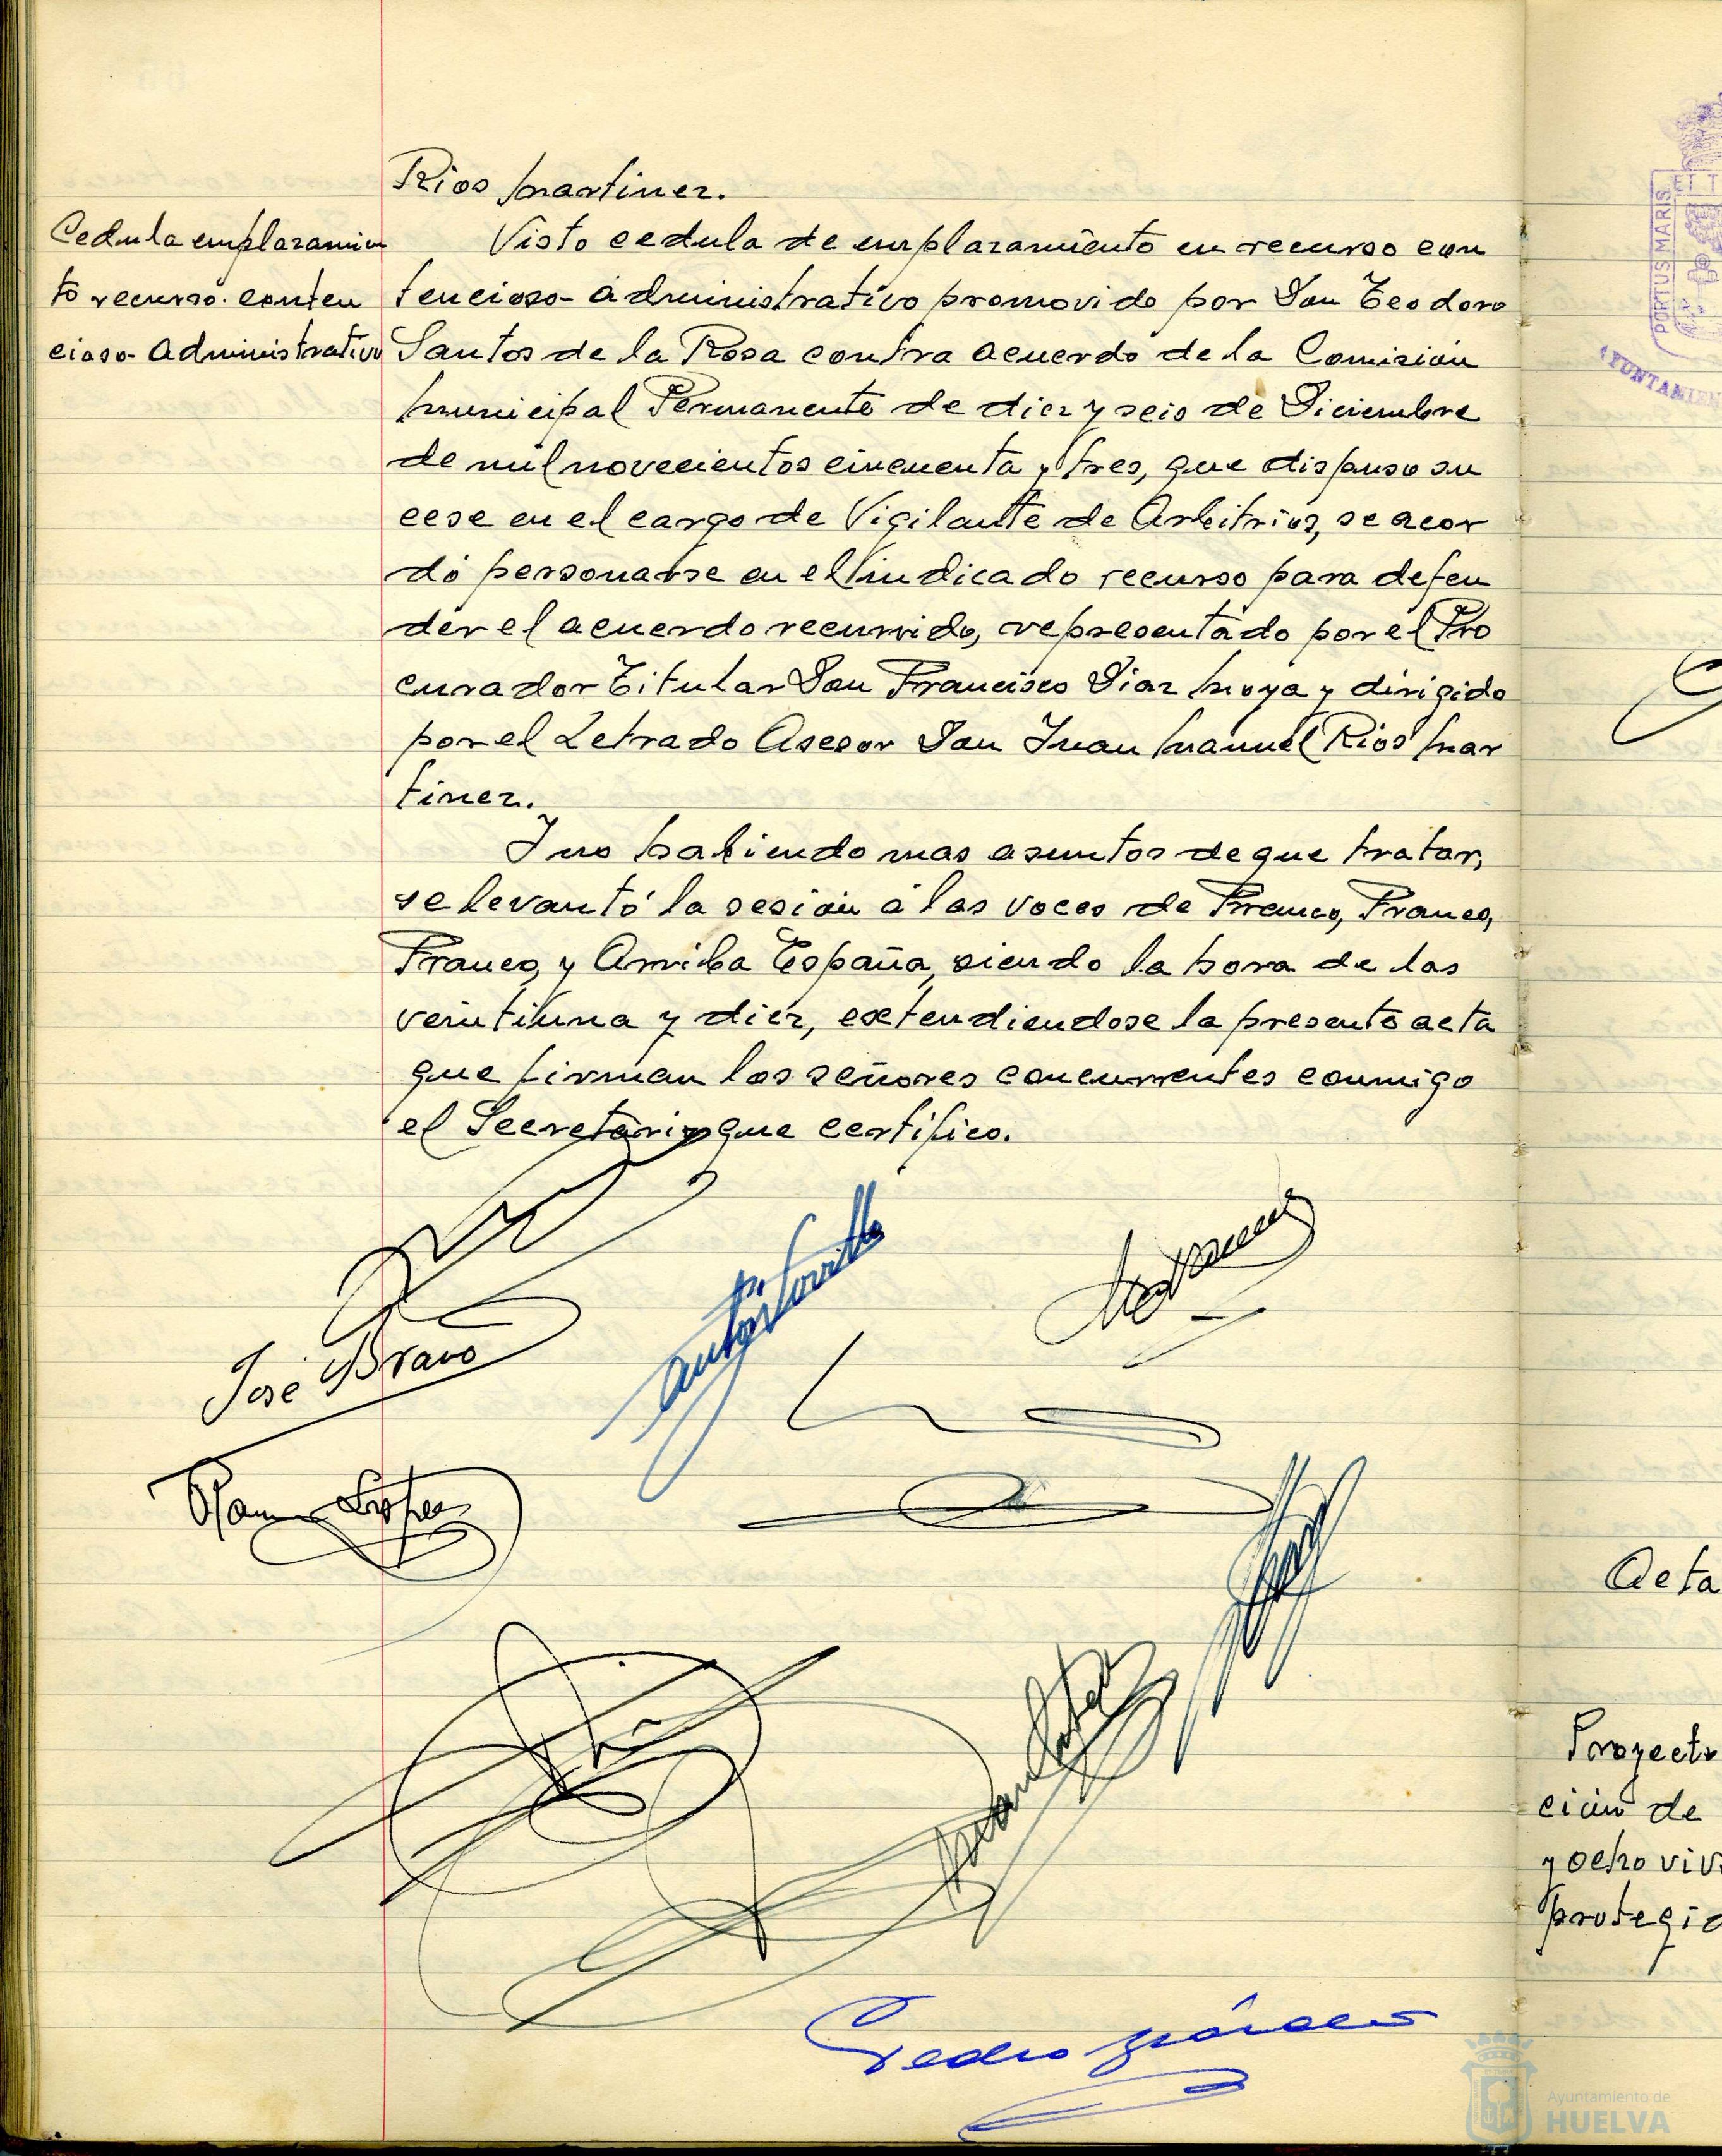 Rios Martinez.
Cedula emplazamien
to recurso conten
cioso-administrativo
Visto cedula de emplazamiento en recurso con
tencioso-administrativo promovido por Don Teodoro
Santos de la Rosa contra acuerdo de la Comisión
Municipal Permanente de diez y seis de Diciembre
de mil novecientos cincuenta y tres, que dispuso su
cese en el cargo de Vigilante de Arbitrios, se acor
dó personarse en el indicado recurso para defen
der el acuerdo recurrido, representado por el Pro
curador Titular Don Francisco Diaz Moya y dirigido
por el Letrado Asesor Don Juan Manuel Rios Mar
tinez.
Y no habiendo mas asuntos de que tratar,
se levantó la sesión a las voces de Franco, Franco,
Franco, y Arriba España, siendo la hora de las
veintiuna y diez, extendiendose la presente acta
que firman los señores concurrentes conmigo
el Secretario que certifico.
José Bravo
PORTUS MARIS
ET T
AYUNTAMIEN
Acta
Proyecto
ción de
y ocho viv
protegid
Ayuntamiento de
HUELVA